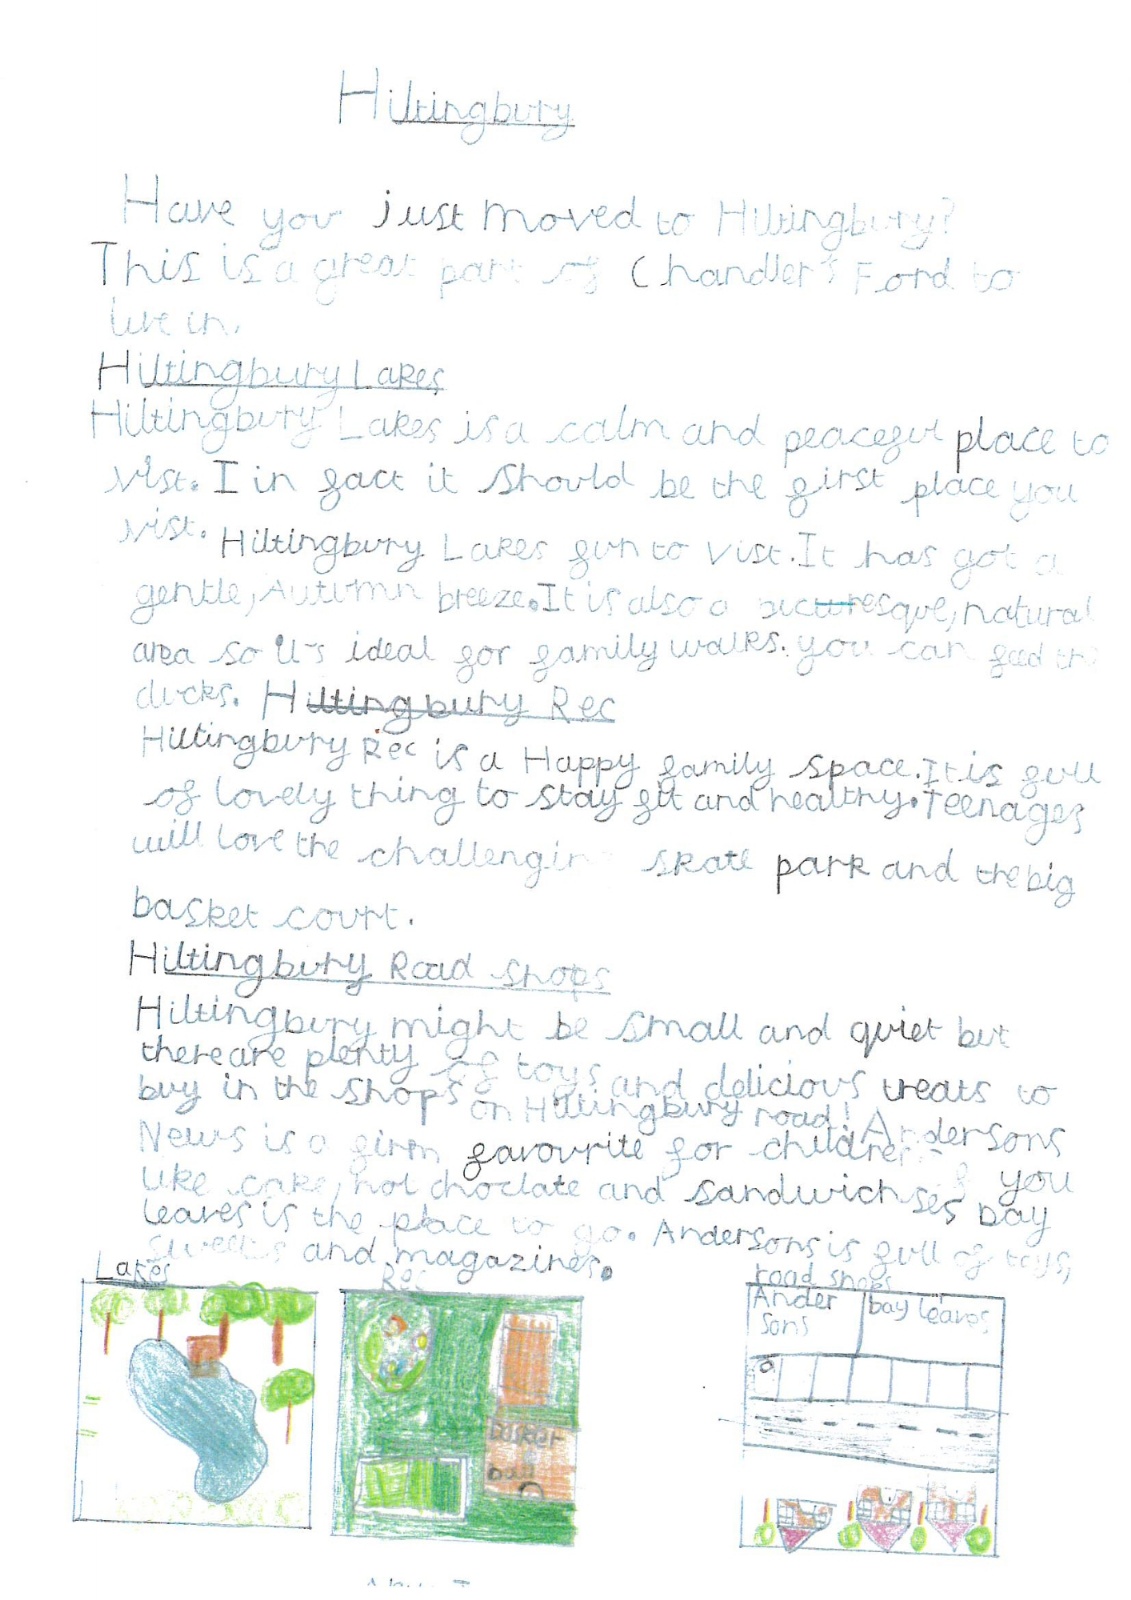 Hiltingbury
Have you just moved to Hiltingbury?
This is a great part of Chandler's Ford to
live in.
Hiltingbury Lakes
Hiltingbury Lakes is a calm and peaceful place to
vist. I in fact it should be the first place you
vist. Hiltingbury Lakes fun to vist. It has got a
gentle, Autumn breeze. It is also a picturesque, natural
area so it's ideal for family walks. you can feed the
ducks. Hiltingbury Rec
Hiltingbury Rec is a Happy family space. It is full
of lovely thing to stay fit and healthy. Teenages
will love the challenging skate park and the big
basket court.
Hiltingbury Road shops
Hiltingbury might be small and quiet but
there are plenty of toys and delicious treats to
buy in the shops on Hiltingbury road! Andersons
News is a firm favourite for children. you
like cake, hot choclate and sandwichses bay
leaves is the place to go. Andersons is full of toys,
sweets and magazines.
Lakes
Rec
road shops
Ander
sons
bay leaves
basket
ball